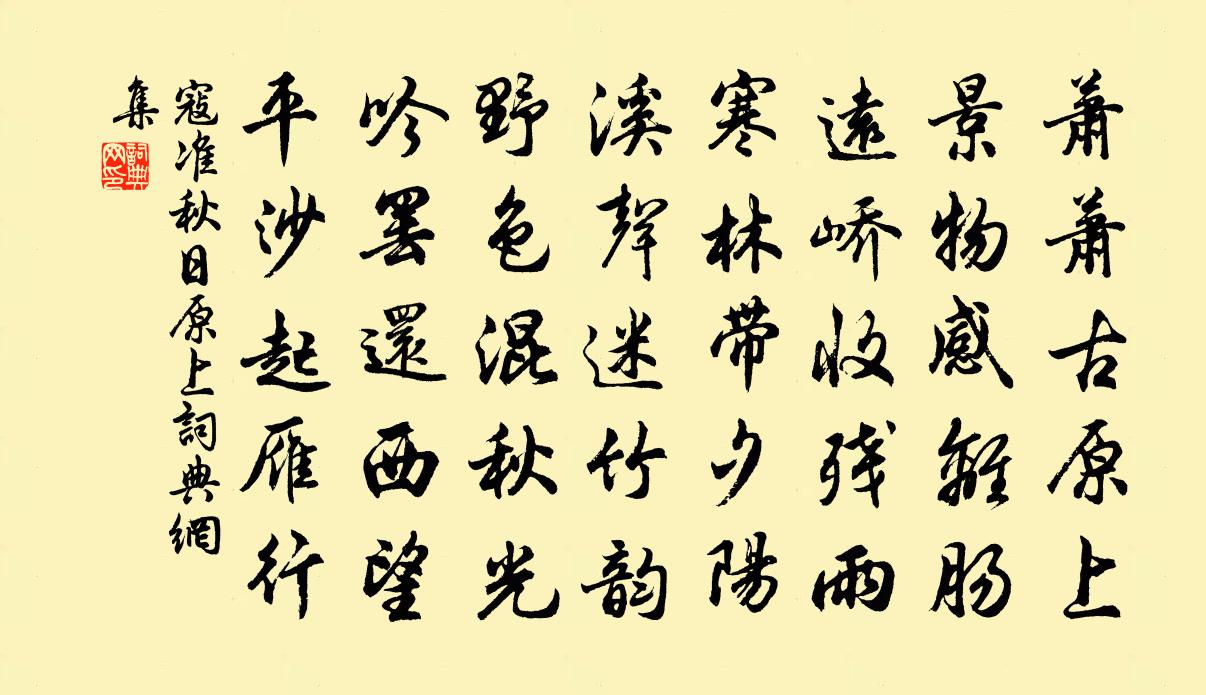 蕭蕭古原上
景物感離腸
遠嶠收殘雨
寒林帶夕陽
溪聲迷竹韵
野色混秋光
吟罢還西望
平沙起雁行
寇准秋日原上詞典網
集
詞典
网印